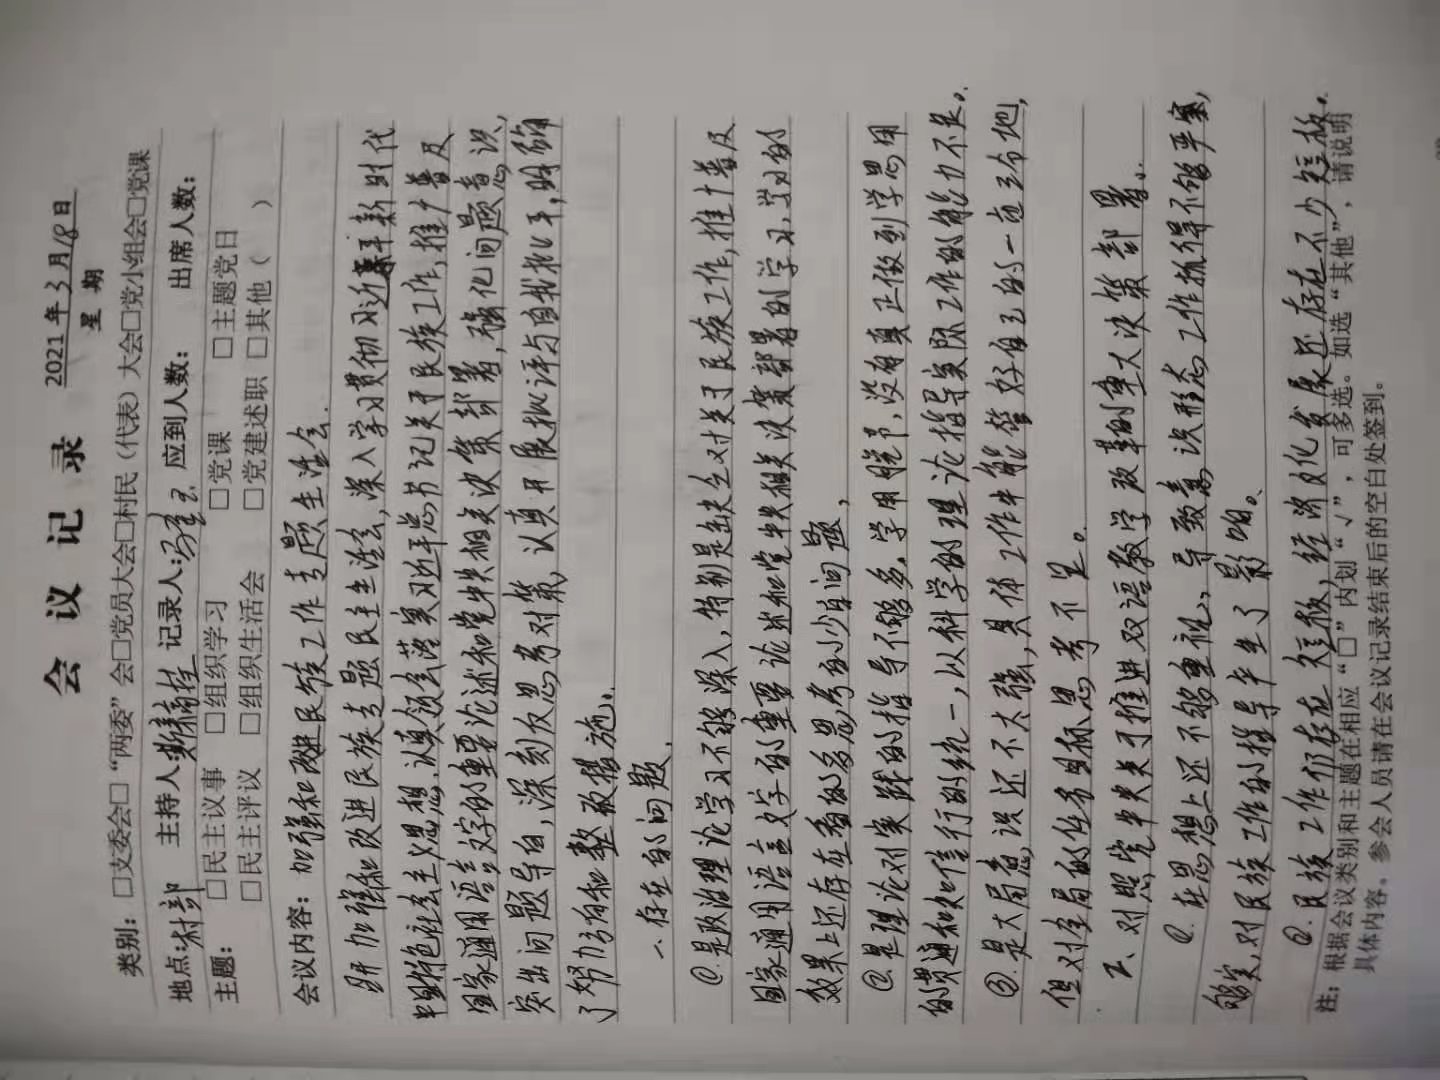 会议记录
2021年3月18日
星期
类别：□支委会□“两委”会□党员大会□村民（代表）大会□党小组会□党课
地点：村部 主持人： 记录人： 应到人数： 出席人数：
主题： □民主议事 □组织学习 □党课 □主题党日
□民主评议 □组织生活会 □党建述职 □其他（ ）
会议内容：加强和改进民族工作专题生活会.
召开加强和改进民族专题民主生活会,深入学习贯彻习近平新时代
中国特色社会主义思想,认真领会落实习近平总书记关于民族工作,推广普及
国家通用语言文字的重要论述和党中央相关决策部署,强化问题意识,
突出问题导向,深刻反思考对策,认真开展批评与自我批评,明确
了努力方向和整改措施。
一.存在的问题.
①是政治理论学习不够深入,特别是缺乏对关于民族工作,推广普及
国家通用语言文字的重要论述和党中央相关决策部署的学习,学习的
效果上还存在看的多思考的少的问题,
②是理论对实践的指导不够多。学用脱节,没有真正做到学思用
的贯通和知信行的统一,以科学的理论指导实际工作的能力不足。
③.是大局意识还不太强,具体工作中能管好自己的一亩三分地,
但对全局的任务目标思考不足。
二、对照党中央关于推进双语教学改革的重大决策部署。
①.在思想上还不够重视、导致意识形态工作抓得不够严实,
够实,对民族工作的指导产生了影响。
②.民族工作仍存在短板,经济文化发展还存在不少短板。
注：根据会议类别和主题在相应“□”内划“√”，可多选。如选“其他”，请说明
具体内容。参会人员请在会议记录结束后的空白处签到。